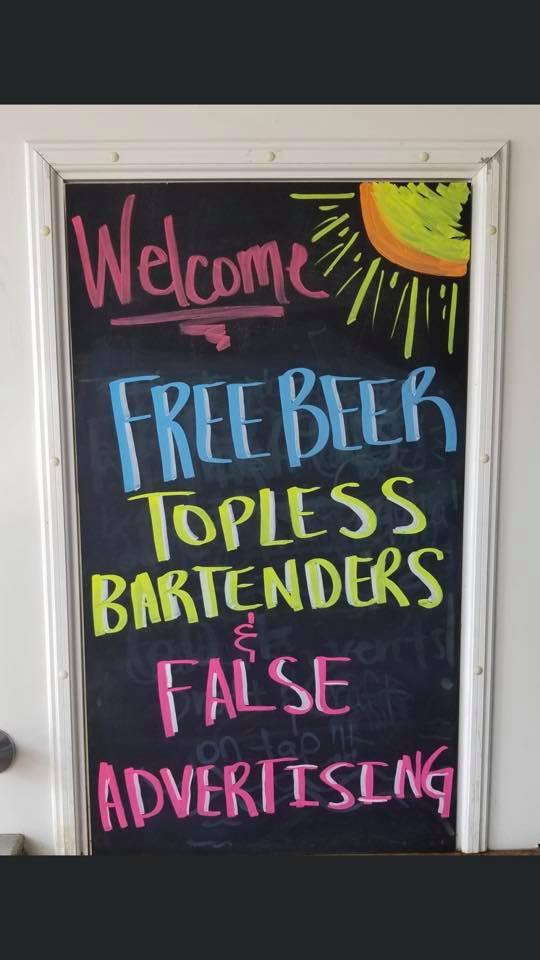 Welcome
FREE BEER
TOPLESS
BARTENDERS
&
FALSE
ADVERTISING
on tap!!!